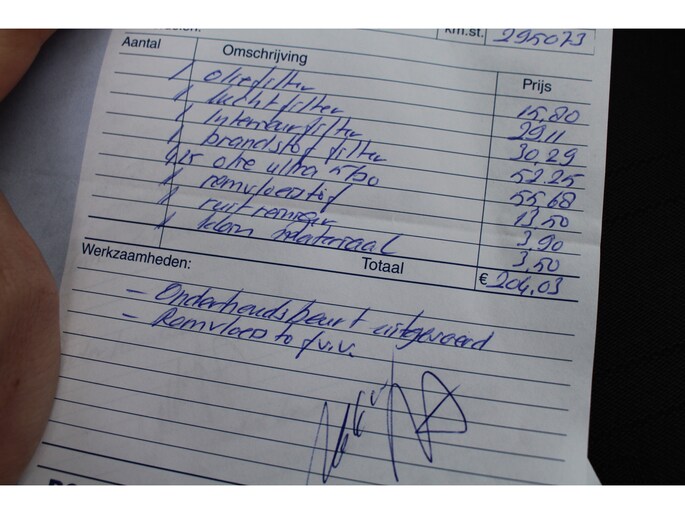 km.st. 295073
Aantal Omschrijving Prijs
1 oliefilter 15,80
1 luchtfilter 29,11
1 Interieurfilter 30,29
1 brandstof filter 52,25
4,25 olie ultra 5/30 55,68
1 remvloeistof 13,50
1 ruitreiniger 3,90
1 klein materiaal 3,50
Totaal € 204,03
Werkzaamheden:
- Onderhoudsbeurt uitgevoerd
- Remvloeistof v.v.